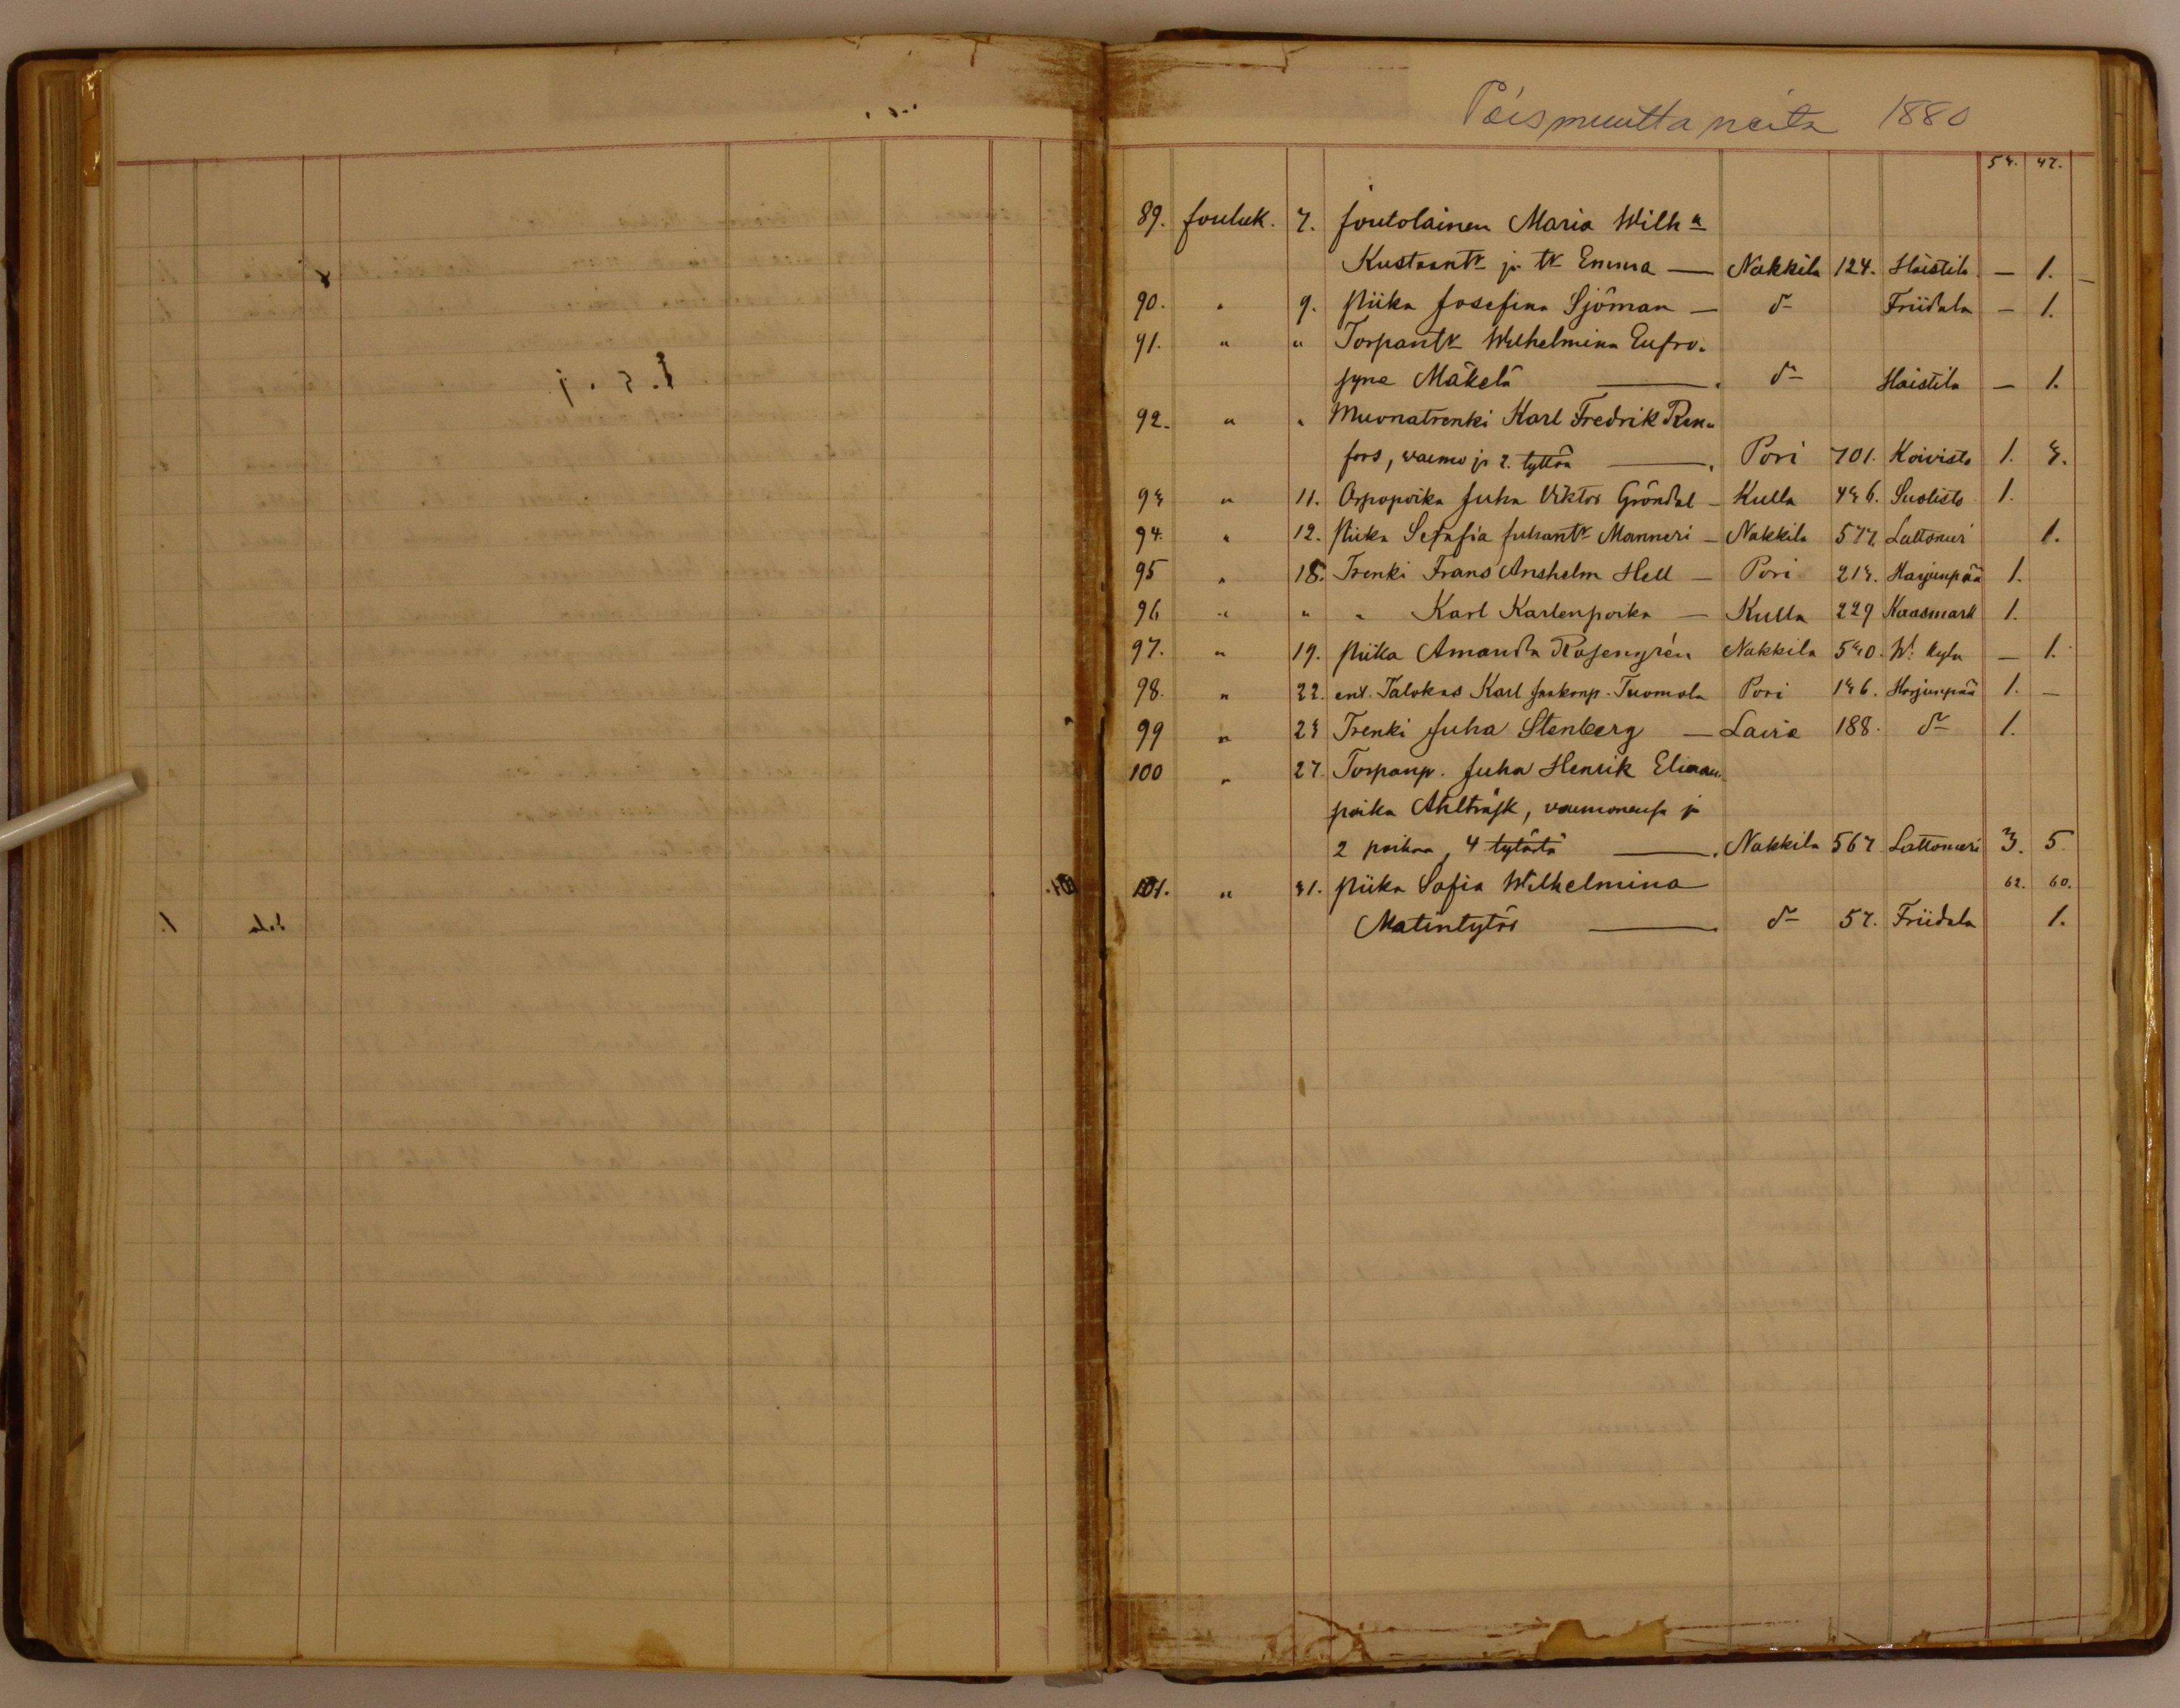 Poismuuttaneita 1880
53. 47.
89. Jouluk. 7. Joutolainen Maria Wilh:a
Kustaantr ja tr Emma — Nakkila 124. Haistila — 1.
90. " 9. Piika Josefina Sjöman — d:o Friidala — 1.
91. " " Torpantr Wilhelmina Eufro-
syne Mäkelä — d:o Haistila — 1.
92. " " Muonatrenki Karl Fredrik Ren-
fors, waimo ja 2. tyttöä — Pori 701. Koivisto 1. 3.
93 " 11. Orpopoika Juha Viktor Gröndal — Kulla 436. Suolisto 1.
94. " 12. Piika Serafia Juhantr Manneri — Nakkila 577. Lattomeri 1.
95 " 18. Trenki Frans Anshelm Hell — Pori 213. Harjunpää 1.
96 " " " Karl Karlenpoika — Kulla 229 Kaasmark 1.
97. " 19. Piika Amanda Rosengrén Nakkila 530. W: kyla — 1.
98. " 22. ent. Talokas Karl Jaakonp. Tuomola Pori 136. Harjunpää 1. —
99 " 23 Trenki Juha Stenberg — Lavia 188. d:o 1.
100 " 27. Torpanp. Juha Henrik Eliaan-
poika Ahlträsk, vaimonensa ja
2 poikaa, 4 tytärtä — Nakkila 567 Lattomeri 3. 5.
101. " 31. Piika Sofia Wilhelmina 62. 60.
Matintytär — d:o 57. Friidala 1.